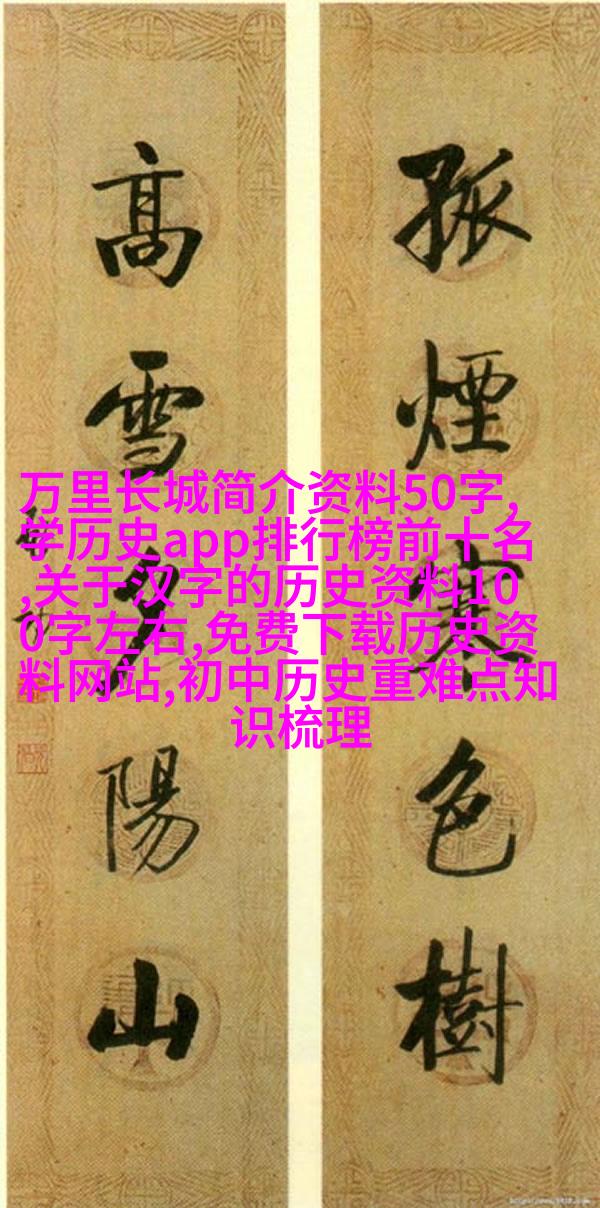 孤煙寒色樹
高雪夕陽山
万里长城简介资料50字,
学历史app排行榜前十名
,关于汉字的历史资料10
0字左右,免费下载历史资
料网站,初中历史重难点知
识梳理